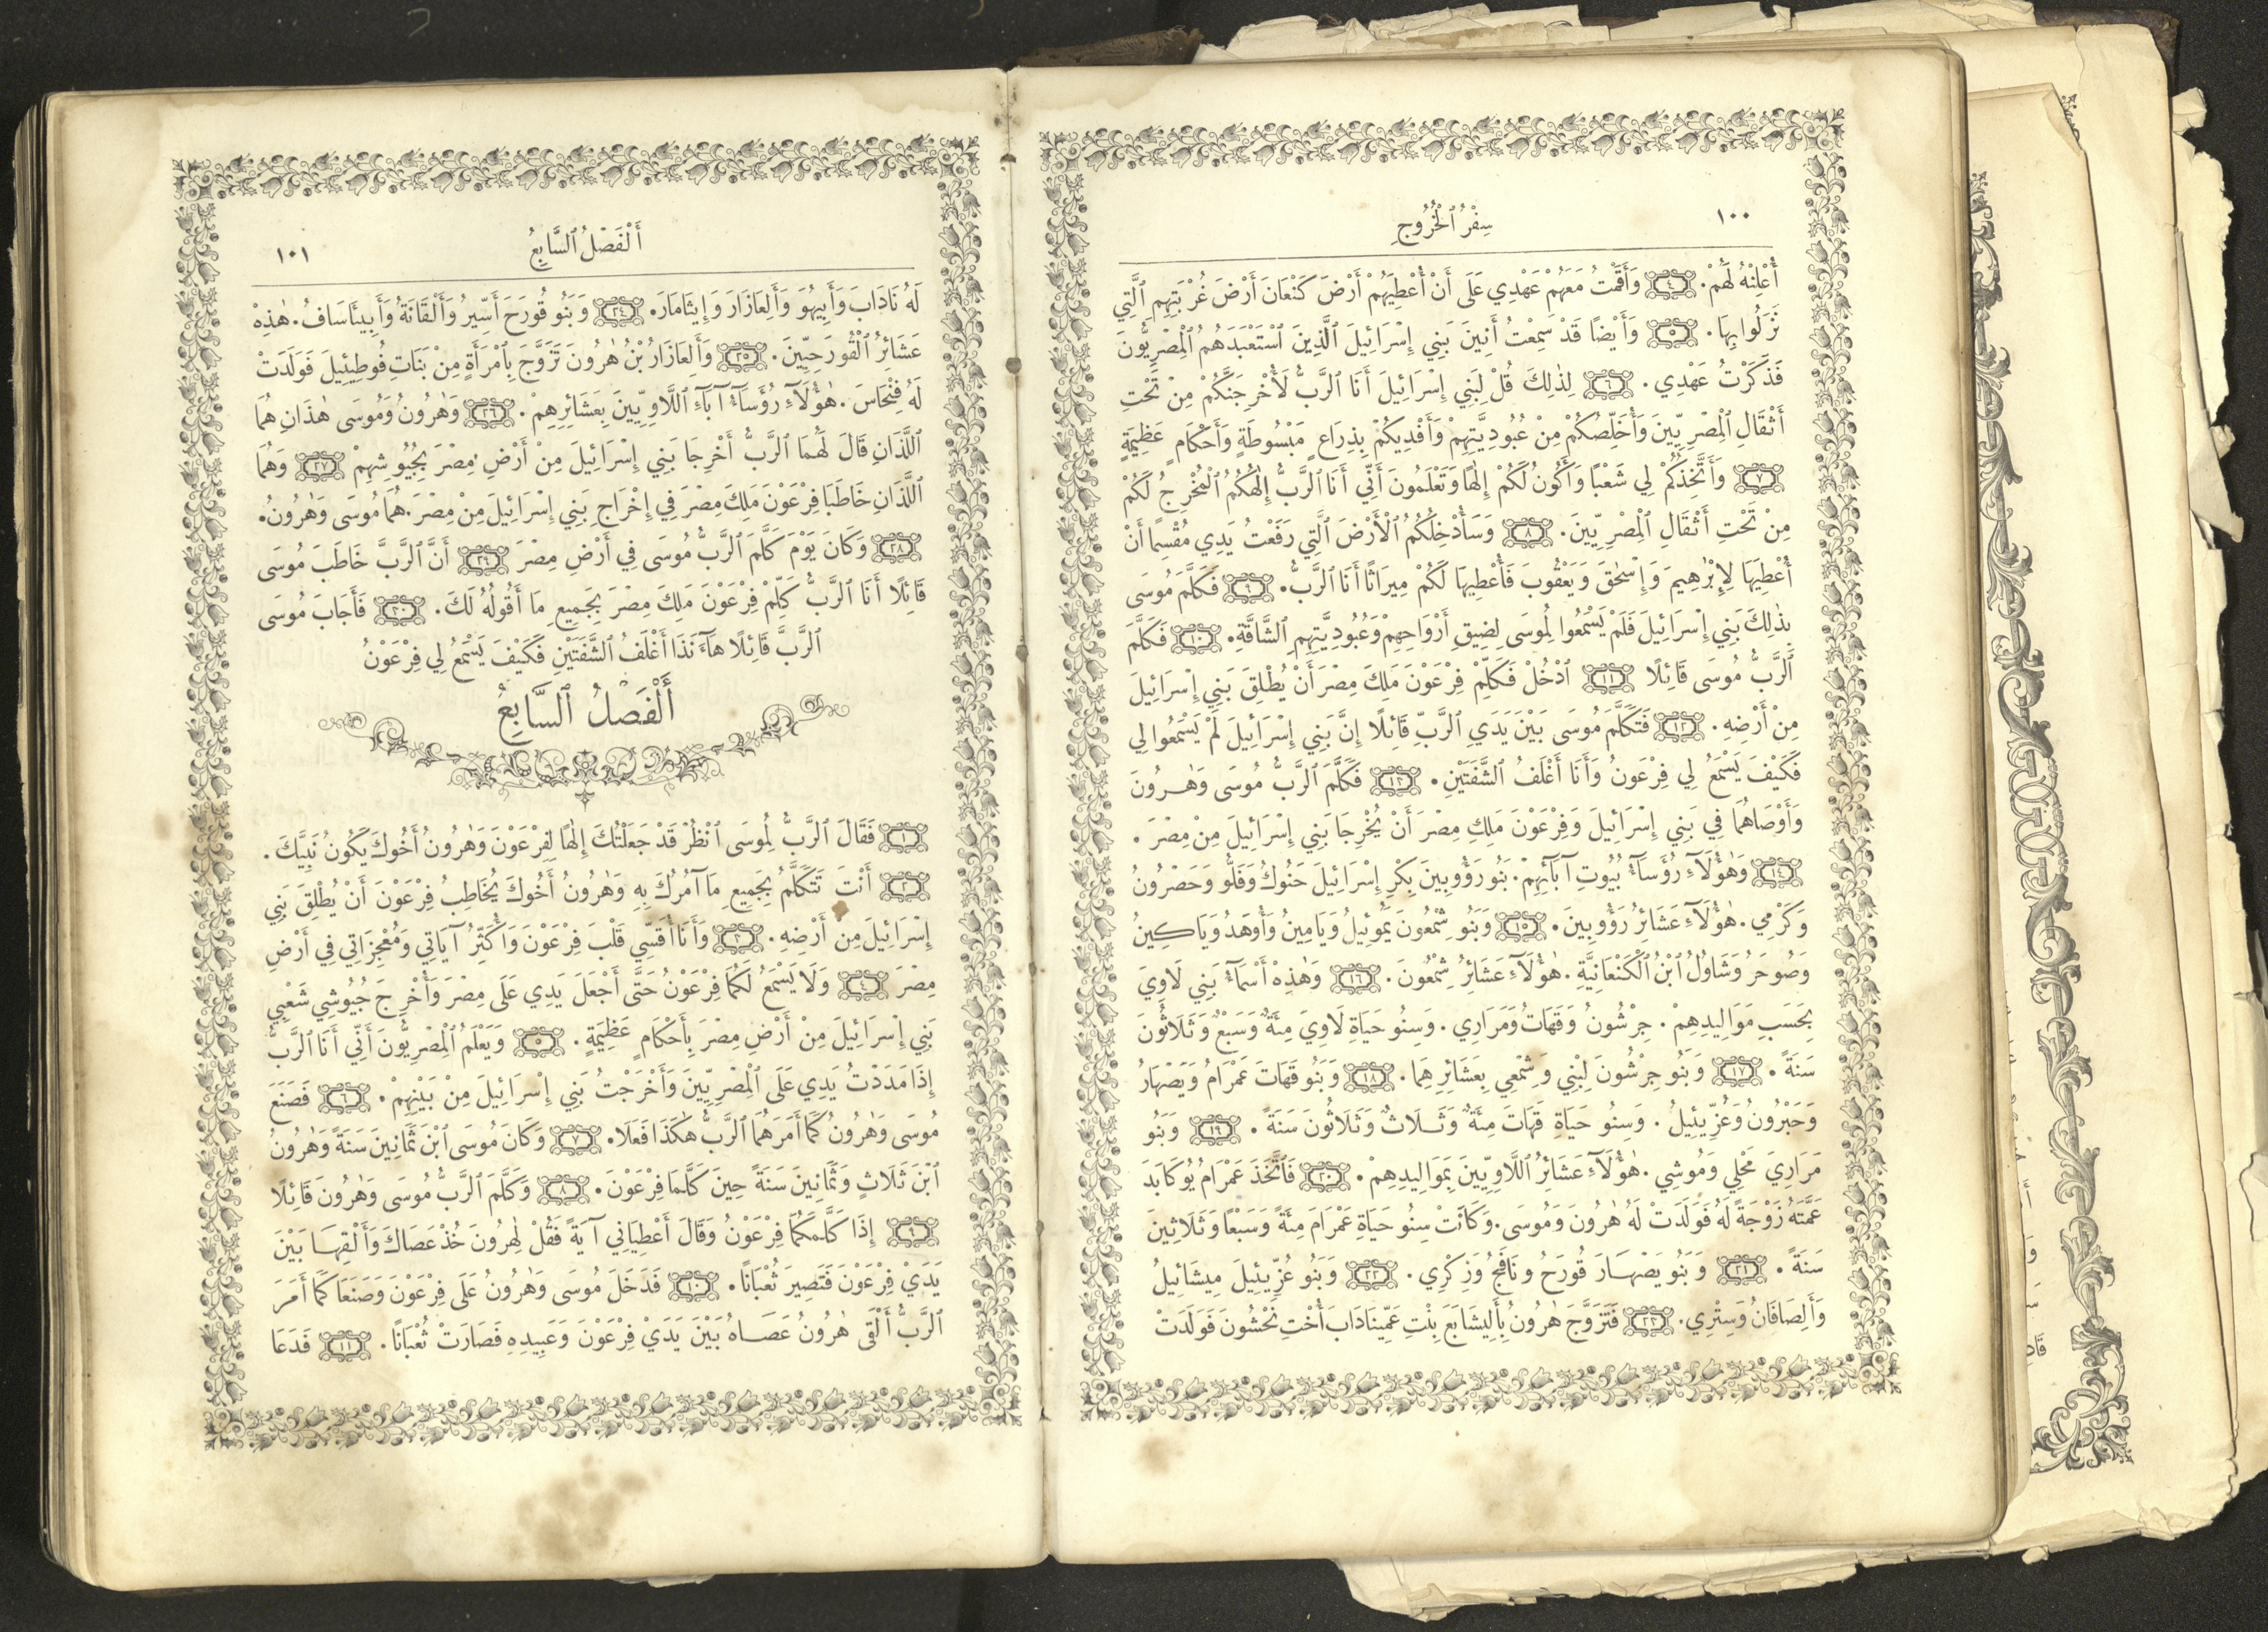 ١٠٠
سِفْرُ ٱلْخُرُوجِ
أُعْلِنْهُ لَهُمْ. ﴿٤﴾ وَأَقَمْتُ مَعَهُمْ عَهْدِي عَلَى أَنْ أُعْطِيَهُمْ أَرْضَ كَنْعَانَ أَرْضَ غُرْبَتِهِمِ ٱلَّتِي
نَزَلُوا بِهَا. ﴿٥﴾ وَأَيْضًا قَدْ سَمِعْتُ أَنِينَ بَنِي إِسْرَائِيلَ ٱلَّذِينَ ٱسْتَعْبَدَهُمُ ٱلْمِصْرِيُّونَ
فَذَكَرْتُ عَهْدِي. ﴿٦﴾ لِذٰلِكَ قُلْ لِبَنِي إِسْرَائِيلَ أَنَا ٱلرَّبُّ لَأُخْرِجَنَّكُمْ مِنْ تَحْتِ
أَثْقَالِ ٱلْمِصْرِيِّينَ وَأُخَلِّصُكُمْ مِنْ عُبُودِيَّتِهِمْ وَأَفْدِيكُمْ بِذِرَاعٍ مَبْسُوطَةٍ وَأَحْكَامٍ عَظِيمَةٍ
﴿٧﴾ وَأَتَّخِذُكُمْ لِي شَعْبًا وَأَكُونُ لَكُمْ إِلٰهًا وَتَعْلَمُونَ أَنِّي أَنَا ٱلرَّبُّ إِلٰهُكُمُ ٱلْمُخْرِجُ لَكُمْ
مِنْ تَحْتِ أَثْقَالِ ٱلْمِصْرِيِّينَ. ﴿٨﴾ وَسَأُدْخِلُكُمُ ٱلْأَرْضَ ٱلَّتِي رَفَعْتُ يَدِي مُقْسِمًا أَنْ
أُعْطِيَهَا لِإِبْرٰهِيمَ وَإِسْحٰقَ وَيَعْقُوبَ فَأُعْطِيهَا لَكُمْ مِيرَاثًا أَنَا ٱلرَّبُّ. ﴿٩﴾ فَكَلَّمَ مُوسَى
بِذٰلِكَ بَنِي إِسْرَائِيلَ فَلَمْ يَسْمَعُوا لِمُوسَى لِضِيقِ أَرْوَاحِهِمْ وَعُبُودِيَّتِهِمِ ٱلشَّاقَّةِ. ﴿١٠﴾ فَكَلَّمَ
ٱلرَّبُّ مُوسَى قَائِلًا ﴿١١﴾ ٱدْخُلْ فَكَلِّمْ فِرْعَوْنَ مَلِكَ مِصْرَ أَنْ يُطْلِقَ بَنِي إِسْرَائِيلَ
مِنْ أَرْضِهِ. ﴿١٢﴾ فَتَكَلَّمَ مُوسَى بَيْنَ يَدَيِ ٱلرَّبِّ قَائِلًا إِنَّ بَنِي إِسْرَائِيلَ لَمْ يَسْمَعُوا لِي
فَكَيْفَ يَسْمَعُ لِي فِرْعَوْنُ وَأَنَا أَغْلَفُ ٱلشَّفَتَيْنِ. ﴿١٣﴾ فَكَلَّمَ ٱلرَّبُّ مُوسَى وَهٰرُونَ
وَأَوْصَاهُمَا فِي بَنِي إِسْرَائِيلَ وَفِرْعَوْنَ مَلِكِ مِصْرَ أَنْ يُخْرِجَا بَنِي إِسْرَائِيلَ مِنْ مِصْرَ.
﴿١٤﴾ وَهٰؤُلَآءِ رُؤَسَآءُ بُيُوتِ آبَآئِهِمْ. بَنُو رَؤُوبِينَ بِكْرِ إِسْرَائِيلَ حَنُوكُ وَفَلُّو وَحَصْرُونُ
وَكَرْمِي. هٰؤُلَآءِ عَشَائِرُ رَؤُوبِينَ. ﴿١٥﴾ وَبَنُو شِمْعُونَ يَمُوئِيلُ وَيَامِينُ وَأُوهَدُ وَيَاكِينُ
وَصُوحَرُ وَشَاوُلُ ٱبْنُ ٱلْكَنْعَانِيَّةِ. هٰؤُلَآءِ عَشَائِرُ شِمْعُونَ. ﴿١٦﴾ وَهٰذِهْ أَسْمَآءُ بَنِي لَاوِيَ
بِحَسَبِ مَوَالِيدِهِمْ. جِرْشُونُ وَقَهَاتُ وَمَرَارِي. وَسِنُو حَيَاةِ لَاوِيَ مِئَةٌ وَسَبْعٌ وَثَلَاثُونَ
سَنَةً. ﴿١٧﴾ وَبَنُو جِرْشُونَ لِبْنِي وَشِمْعِي بِعَشَائِرِهِمَا. ﴿١٨﴾ وَبَنُو قَهَاتَ عَمْرَامُ وَيَصْهَارُ
وَحَبْرُونُ وَعُزِّيئِيلُ. وَسِنُو حَيَاةِ قَهَاتَ مِئَةٌ وَثَلَاثٌ وَثَلَاثُونَ سَنَةً. ﴿١٩﴾ وَبَنُو
مَرَارِيَ مَحْلِي وَمُوشِي. هٰؤُلَآءِ عَشَائِرُ ٱللَّاوِيِّينَ بِمَوَالِيدِهِمْ. ﴿٢٠﴾ فَٱتَّخَذَ عَمْرَامُ يُوكَابَدَ
عَمَّتَهُ زَوْجَةً لَهُ فَوَلَدَتْ لَهُ هٰرُونَ وَمُوسَى. وَكَانَتْ سِنُو حَيَاةِ عَمْرَامَ مِئَةً وَسَبْعًا وَثَلَاثِينَ
سَنَةً. ﴿٢١﴾ وَبَنُو يَصْهَارَ قُورَحُ وَنَافَجُ وَزِكْرِي. ﴿٢٢﴾ وَبَنُو عُزِّيئِيلَ مِيشَائِيلُ
وَأَلِصَافَانُ وَسِتْرِي. ﴿٢٣﴾ فَتَزَوَّجَ هٰرُونُ بِأَلِيشَابَعَ بِنْتِ عَمِّينَادَابَ أُخْتِ نَحْشُونَ فَوَلَدَتْ
أَلْفَصْلُ ٱلسَّابِعُ
١٠١
لَهُ نَادَابَ وَأَبِيهُوَ وَأَلِعَازَارَ وَإِيثَامَارَ. ﴿٢٤﴾ وَبَنُو قُورَحَ أَسِّيرُ وَأَلْقَانَةُ وَأَبِيئَاسَافُ. هٰذِهْ
عَشَائِرُ ٱلْقُورَحِيِّينَ. ﴿٢٥﴾ وَأَلِعَازَارُ بْنُ هٰرُونَ تَزَوَّجَ بِٱمْرَأَةٍ مِنْ بَنَاتِ فُوطِيئِيلَ فَوَلَدَتْ
لَهُ فِنْحَاسَ. هٰؤُلَآءِ رُؤَسَآءُ آبَآءِ ٱللَّاوِيِّينَ بِعَشَائِرِهِمْ. ﴿٢٦﴾ وَهٰرُونُ وَمُوسَى هٰذَانِ هُمَا
ٱللَّذَانِ قَالَ لَهُمَا ٱلرَّبُّ أَخْرِجَا بَنِي إِسْرَائِيلَ مِنْ أَرْضِ مِصْرَ بِجُيُوشِهِمْ ﴿٢٧﴾ وَهُمَا
ٱللَّذَانِ خَاطَبَا فِرْعَوْنَ مَلِكَ مِصْرَ فِي إِخْرَاجِ بَنِي إِسْرَائِيلَ مِنْ مِصْرَ. هُمَا مُوسَى وَهٰرُونُ.
﴿٢٨﴾ وَكَانَ يَوْمَ كَلَّمَ ٱلرَّبُّ مُوسَى فِي أَرْضِ مِصْرَ ﴿٢٩﴾ أَنَّ ٱلرَّبَّ خَاطَبَ مُوسَى
قَائِلًا أَنَا ٱلرَّبُّ كَلِّمْ فِرْعَوْنَ مَلِكَ مِصْرَ بِجَمِيعِ مَا أَقُولُهُ لَكَ. ﴿٣٠﴾ فَأَجَابَ مُوسَى
ٱلرَّبَّ قَائِلًا هَآءَنَذَا أَغْلَفُ ٱلشَّفَتَيْنِ فَكَيْفَ يَسْمَعُ لِي فِرْعَوْنُ
أَلْفَصْلُ ٱلسَّابِعُ
﴿١﴾ فَقَالَ ٱلرَّبُّ لِمُوسَى ٱنْظُرْ قَدْ جَعَلْتُكَ إِلٰهًا لِفِرْعَوْنَ وَهٰرُونُ أَخُوكَ يَكُونُ نَبِيَّكَ.
﴿٢﴾ أَنْتَ تَتَكَلَّمُ بِجَمِيعِ مَا آمُرُكَ بِهِ وَهٰرُونُ أَخُوكَ يُخَاطِبُ فِرْعَوْنَ أَنْ يُطْلِقَ بَنِي
إِسْرَائِيلَ مِن أَرْضِهِ. ﴿٣﴾ وَأَنَا أُقَسِّي قَلْبَ فِرْعَوْنَ وَأُكَثِّرُ آيَاتِي وَمُعْجِزَاتِي فِي أَرْضِ
مِصْرَ ﴿٤﴾ وَلَا يَسْمَعُ لَكُمَا فِرْعَوْنُ حَتَّى أَجْعَلَ يَدِي عَلَى مِصْرَ وَأُخْرِجَ جُيُوشِي شَعْبِي
بَنِي إِسْرَائِيلَ مِنْ أَرْضِ مِصْرَ بِأَحْكَامٍ عَظِيمَةٍ. ﴿٥﴾ وَيَعْلَمُ ٱلْمِصْرِيُّونَ أَنِّي أَنَا ٱلرَّبُّ
إِذَا مَدَدْتُ يَدِي عَلَى ٱلْمِصْرِيِّينَ وَأَخْرَجْتُ بَنِي إِسْرَائِيلَ مِنْ بَيْنِهِمْ. ﴿٦﴾ فَصَنَعَ
مُوسَى وَهٰرُونُ كَمَا أَمَرَهُمَا ٱلرَّبُّ هٰكَذَا فَعَلَا. ﴿٧﴾ وَكَانَ مُوسَى ٱبْنَ ثَمَانِينَ سَنَةً وَهٰرُونُ
ٱبْنَ ثَلَاثٍ وَثَمَانِينَ سَنَةً حِينَ كَلَّمَا فِرْعَوْنَ. ﴿٨﴾ وَكَلَّمَ ٱلرَّبُّ مُوسَى وَهٰرُونَ قَائِلًا
﴿٩﴾ إِذَا كَلَّمَكُمَا فِرْعَوْنُ وَقَالَ أَعْطِيَانِي آيَةً فَقُلْ لِهٰرُونَ خُذْ عَصَاكَ وَأَلْقِهَا بَيْنَ
يَدَيْ فِرْعَوْنَ فَتَصِيرَ ثُعْبَانًا. ﴿١٠﴾ فَدَخَلَ مُوسَى وَهٰرُونُ عَلَى فِرْعَوْنَ وَصَنَعَا كَمَا أَمَرَ
ٱلرَّبُّ أَلْقَى هٰرُونُ عَصَاهُ بَيْنَ يَدَيْ فِرْعَوْنَ وَعَبِيدِهِ فَصَارَتْ ثُعْبَانًا. ﴿١١﴾ فَدَعَا